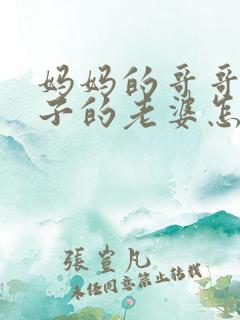 妈妈的哥哥
子的老婆怎
张岂凡
未经同意禁止转载